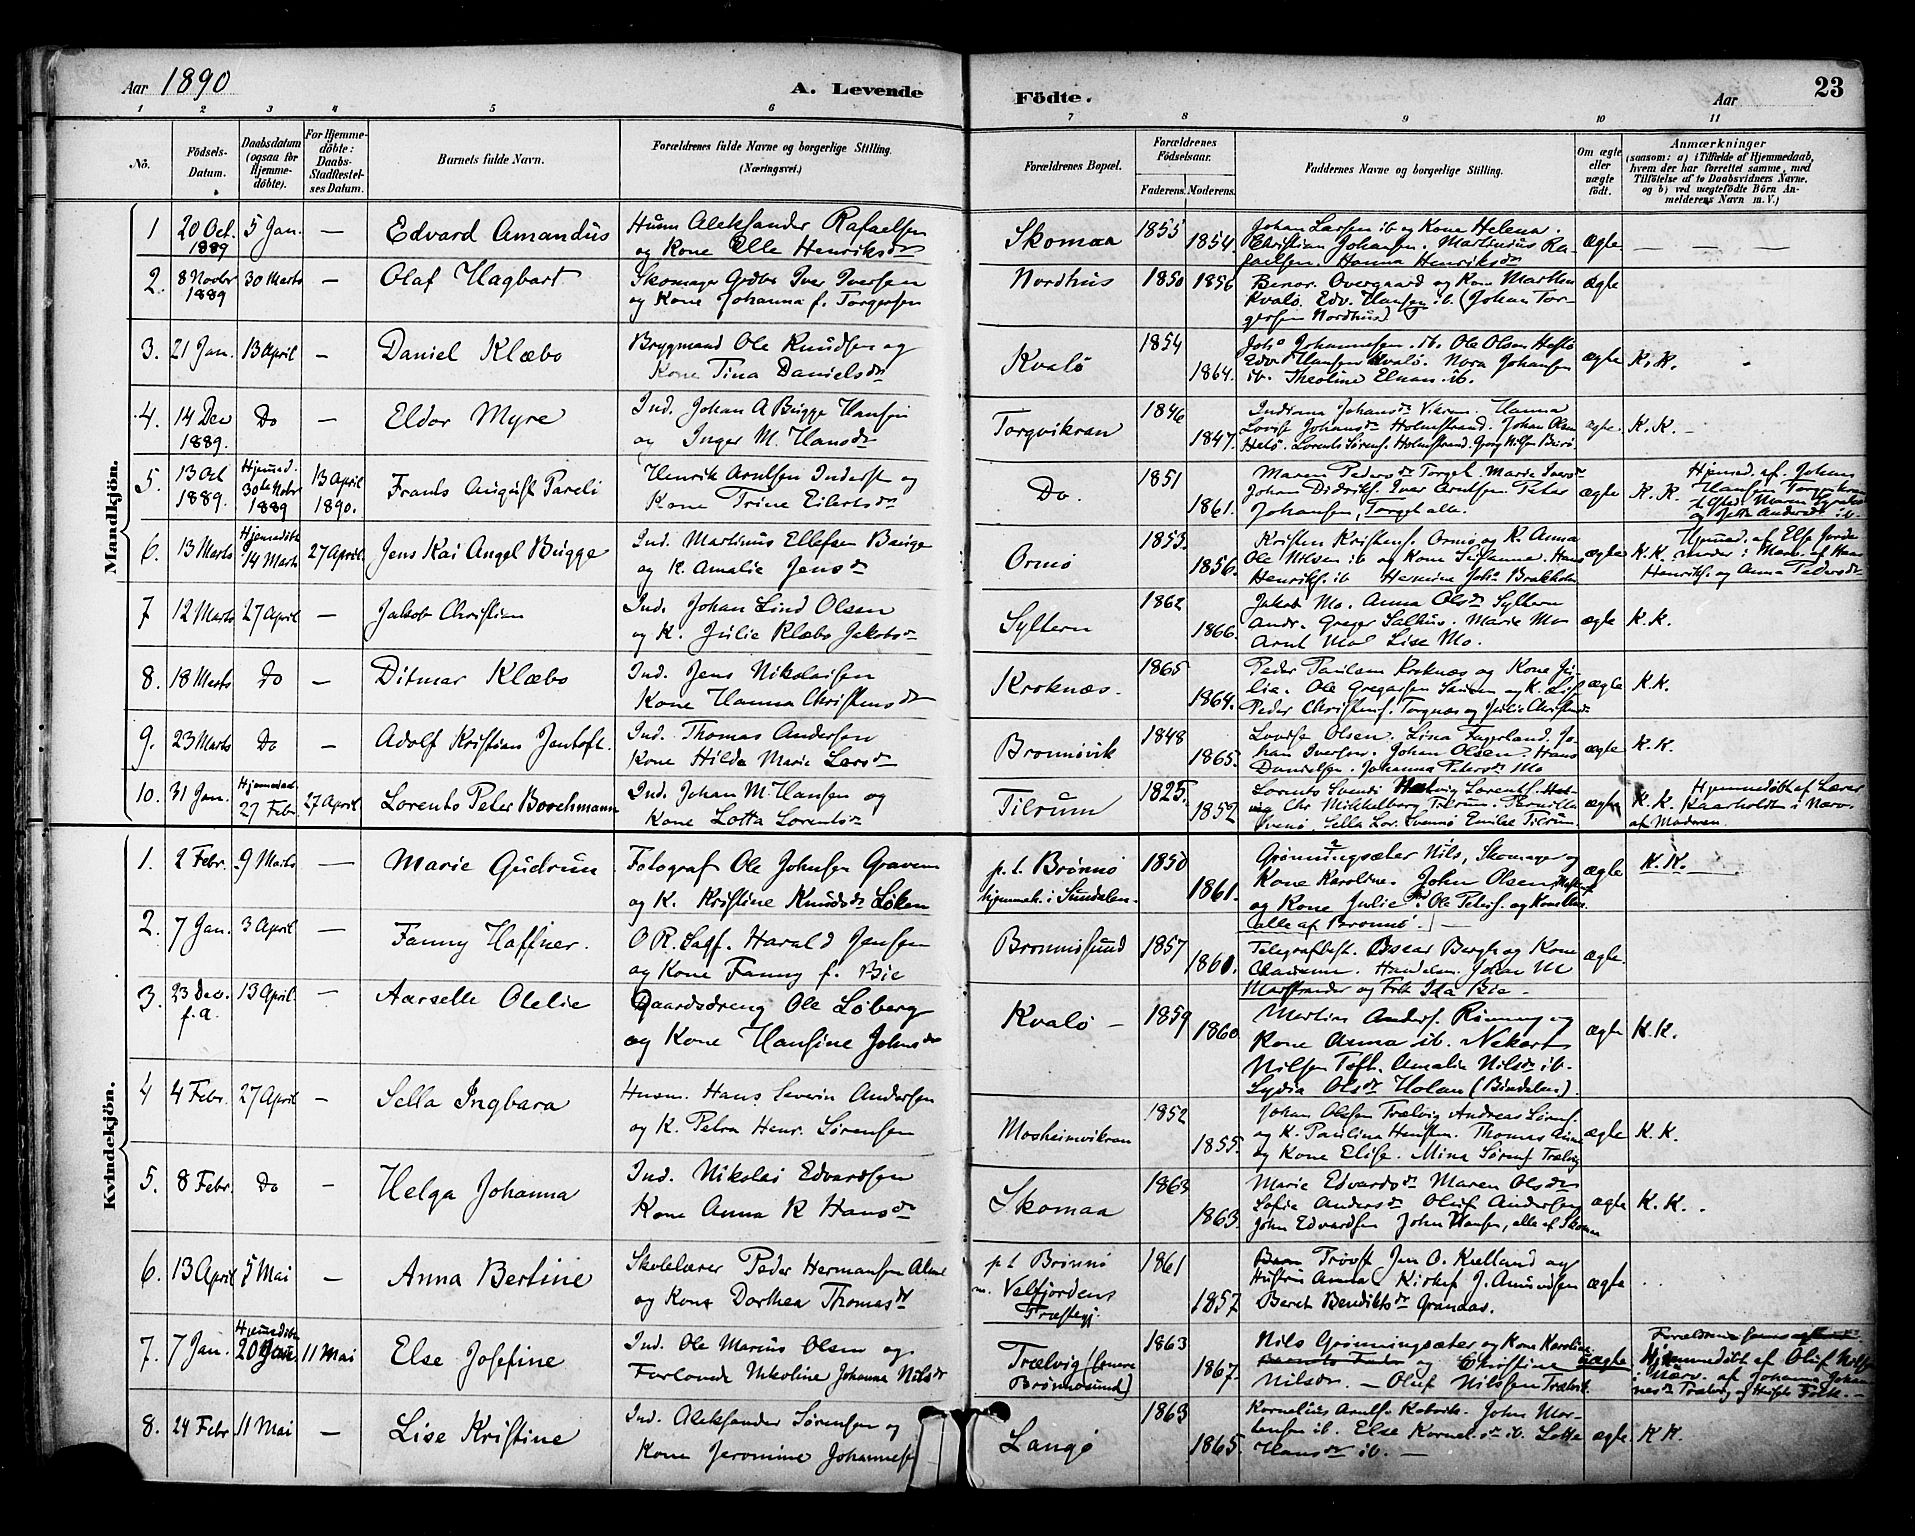 Aar 1890
A. Levende
Födte.
Aar
23
1 2 3 4 5 6 7 8 9 10 11
No.
Födsels-
Datum.
Daabsdatum
(ogsaa for
Hjemme-
döbte).
For Hjemme-
döbte:
Daabs-
Stadfæstel-
ses Datum.
Barnets fulde Navn.
Forældrenes fulde Navne og borgerlige Stilling.
(Næringsvei.)
Forældrenes Bopæl.
Forældrenes
Födselsaar.
Faderens. Moderens.
Faddernes Navne og borgerlige Stilling.
Om ægte
eller
uægte
födt.
Anmærkninger
(saasom: a) i Tilfælde af Hjemmedaab,
hvem der har forrettet samme, med
Tilföielse af to Daabsvidners Navne,
og b) ved uægtefödte Börn An-
melderens Navn m. V.)
Mandkjön.
1 20 Oct. 1889 5 Jan. — Edvard Amandus
Husm Aleksander Rafaelsen
og Kone Elle Henriksdr
Skomaa 1855 1854
Johan Larsen ib og Kone Helena.
Christian Johansen. Martinius Ra-
faelsen. Hanna Henriksdr
ægte — — —
2. 8 Novbr 1889 30 Marts — Olaf Hagbart
Skomager Gdbr Iver Iversen
og Kone Johanna f. Torgersen
Nordhus 1850 1856
Overgaard og Kone Marthe
Kvalø. Edv. Hansen ib. (Johan Tor-
gersen Nordhus)
ægte
3. 21 Jan. 13 April — Daniel Klæbo
Brygmand Ole Knudsen og
Kone Tina Danielsdr
Kvalö 1854 1864.
Johs Johannesen ib. Ole Olsen
Edv Hansen Kvalö. Nora Johansen
ib. Theoline Elnan ib.
ægte K. K.
4. 14 Dec 1889. Do — Eldor Myre
Ind. Johan A Bugge Hansen
og Inger M. Hansdr
Torgvikran 1846 1847.
Indiana Johansdr Hanna
Lovise Johansdr Holmstrand. Johan Olsen
Lorents Sörens. Holmstrand. Georg Nilsen
ægte. K. K. —
5. 13 Oct 1889. Hjemmed. 30te Novbr 1889 13 April 1890. Frants August Pareli
Henrik Arntsen Inderst og
Kone Trine Eilertsdr
Do. 1851 1861.
Maren Pedersdr Torget. Marie
Johan Didriks. Iver Arntsen. Peter
Johansen, Torget alle.
ægte K. K.
Hjemmed. af Johan
Hansen Torgvikran
og Anders ib.
6. 13 Marts Hjemmedöbt 14 Marts 27 April Jens Kai Angel Bugge
Ind. Martinus Ellefsen Bugge
og K. Amalie Jensdr
Ormö 1853. 1856.
Kristen Kristens. Ormö og K. Anna
Ole Nilsen ib og Kone Susanna. Hans
Henriks. ib Hermine Johs Brakholm
ægte K. K.
Hjemmed. af Else Jorde-
moder i Nærv. af Hans
Henriks. og Anna Pedersdr
7 12 Marts 27 April — Jakob Christian
Ind. Johan Lind Olsen
og K. Julie Klæbo Jakobsdr
Syltern 1862 1866.
Jakob Mo. Anna Olsdr Syltern
Andr. Greger Salhus. Marie Mo
Arnt Mo Lise Mo.
ægte K. K.
8. 18 Marts Do — Ditmar Klæbo
Ind. Jens Nikolaisen
Kone Hanna Christensdr
Kroknæs. 1865 1864.
Peder Paulsen Kroknæs og Kone Ju-
lie. Ole Gregersen og K. Lise
Peder Christens. Torgnæs og Julie Christensdr
ægte K. K.
9. 23 Marts Do — Adolf Kristian Jentoft.
Ind. Thomas Andersen
Kone Hilda Marie Larsdr
Brönnövik 1848 1865.
Lovise Olsen. Lina Fagerland. Jo-
han Iversen. Johan Olsen Hans
Danielsen. Johanna Petersdr Mo
ægte K. K.
10. 31 Jan. Hjemmedöbt 27 Febr. 27 April Lorents Peter Borchmann
Ind. Johan M. Hansen og
Kone Lotta Lorentsdr
Tilrum 1825. 1852
Lorents Svenö Lorents.
Chr Mikkelborg Tilrum. Pernille
Svenö. Sella Lor. Svennö Emilie Tilrum.
ægte K. K.
Hjemmedöbt af Lærer
Kaarholdt i Nærv
af Moderen.
Kvindekjön.
1. 2 Febr. 9 Marts — Marie Gudrun
Fotograf Ole Johnsen Gravem
og K. Kristine Knudsdr Løken
p. t. Brönnö
hjemmeh. i Sundalen. 1850 1861.
Grønningsæter Nils, Skomager og
Kone Karoline. John Olsen
og Kone Julie. Ole Peters. og Kone
(alle af Brönnö.)
ægte K. K.
2. 7 Jan. 3 April — Fanny Haffner.
O. R. Sagf. Harald Jensen
og Kone Fanny f. Bie
Brönnösund 1857 1860.
Telegrafbest. Oscar Bergh og Kone
Handelsm. Johan M
Marstrander og Frk Ida Bie —
ægte.
3. 23 Dec. f. a. 13 April. — Aarselle Olelie
Gaardsdreng Ole Löberg
og Kone Hansine Johnsdr
Kvalö — 1859 1860.
Martin Anders. Rönning og
Kone Anna ib. Nekart
Nilsen Toft. Amalie Nilsdr ib.
Lydia Olsdr Holan (Bindalen).
ægte K. K.
4 4 Febr. 27 April — Sella Ingbara
Husm. Hans Severin Andersen
og K. Petra Henr. Sörensen
Mosheimvikran 1852 1855.
Johan Olesen Trælvig Andreas Sörens.
og K. Paulina Hensten. Thomas
og Kone Elise. Mina Sörens. Trælvig
ægte K. K.
5. 8 Febr. Do — Helga Johanna
Ind. Nikolai Edvardsen
Kone Anna K Hansdr
Skomaa 1863 1863.
Marie Edvardsdr Maren Olsdr
Sofie Andersdr Oluf Andersen
John Edvardsen John Hansen, alle af Skomaa
ægte K. K.
6. 13 April. 5 Mai — Anna Bertine
Skolelærer Peder Hermansen
og Kone Dorthea Thomasdr
p t Brönnö
Velfjordens
Præstegj. 1861 1857.
Provst Jen O. Kielland og
Hustru Anna. Kirkes. J. Amundsen
Beret Benediktsdr Granaas.
ægte
7. 7 Jan. Hjemmedöbt 20 Jan. 11 Mai Else Josefine
Ind. Ole Marius Olsen og
Forlovede Nikoline Johanna Nilsdr
Trælvig (senere
Brönnösund) 1863 1867.
Nils Grönningsæter og Kone Karoline
og Christine
Nilsdr. — Oluf Nilssen Trælvik
uægte
Hjemmedöbt af Oluf Nils
i Nærv. af Johanna Johan-
nesdr Trælvig og
8. 24 Febr 11 Mai — Lise Kristine
Ind. Aleksander Sörensen og
Kone Jeromine Johannesdr
Langö 1863 1865.
Kornelius Arntss. Kalvik. John Mor-
tensen ib. Else Kornel.sdr ib. Lotte
Hansdr ib. —
ægte. K K.